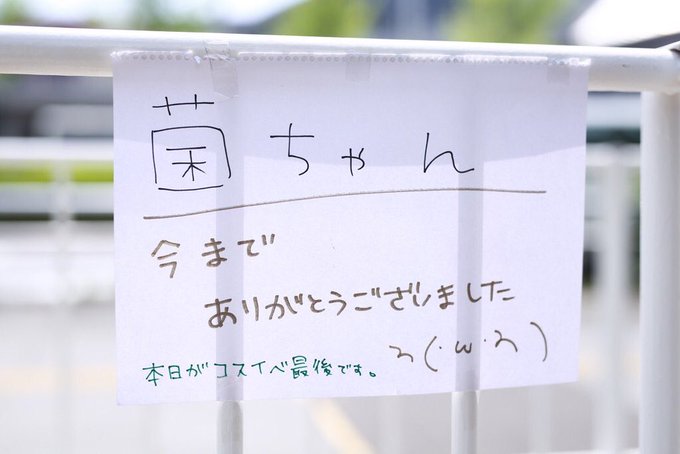 菌ちゃん
今まで
ありがとうございました
本日がコスイベ最後です。
ว(・ω・ว)